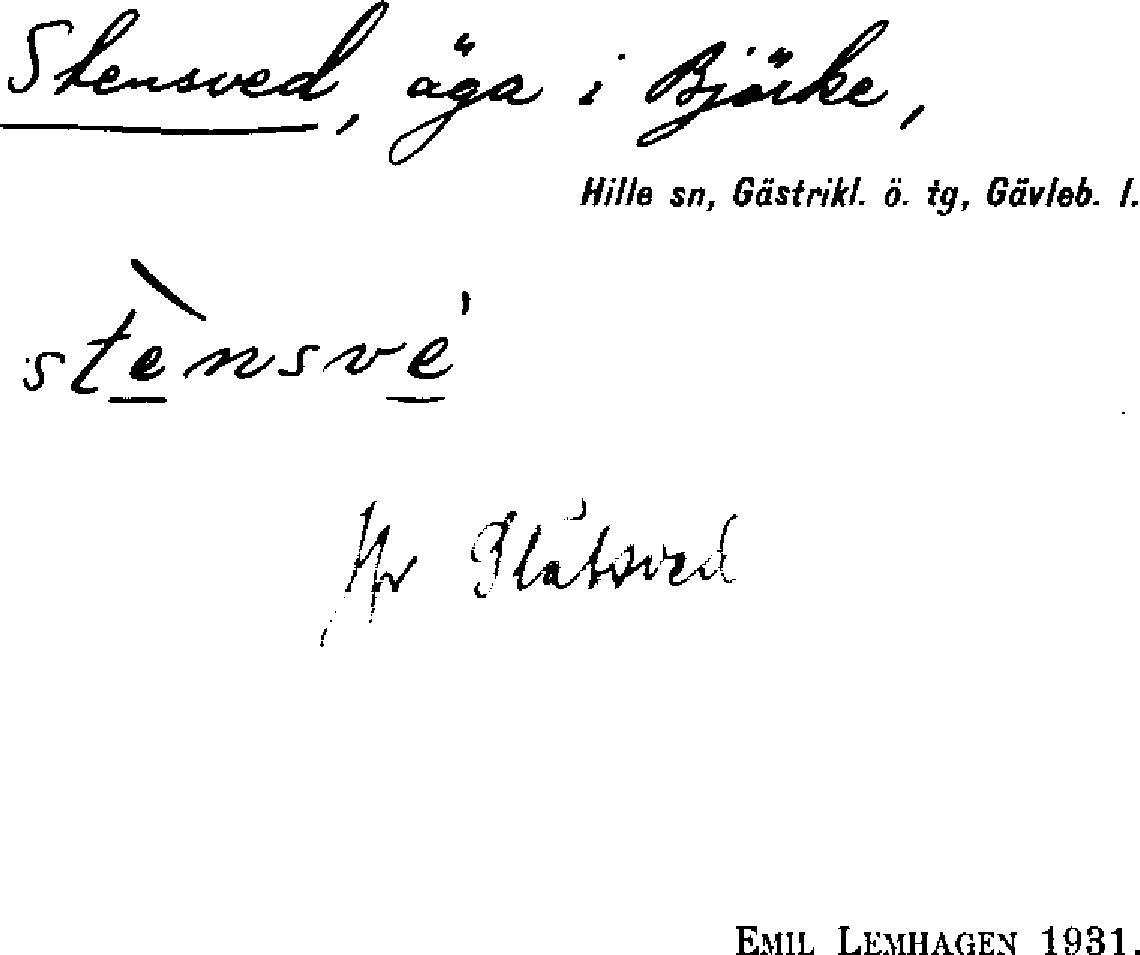 Stensved, äga i Björke,
Hille sn, Gästrikl. ö. tg, Gävleb. l.
stènsvé
Jfr Slåtsved
EMIL LEMHAGEN 1931.